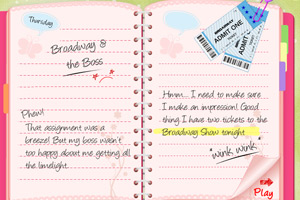 Thursday
Broadway &
the Boss
Phew!
That assignment was a
breeze! But my boss wasn't
too happy about me getting all
the limelight.
BROADWAY
ADMIT ONE
ADMIT ONE
Hmm... I need to make sure
I make an impression! Good
thing I have two tickets to the
Broadway Show tonight.
wink, wink
Play